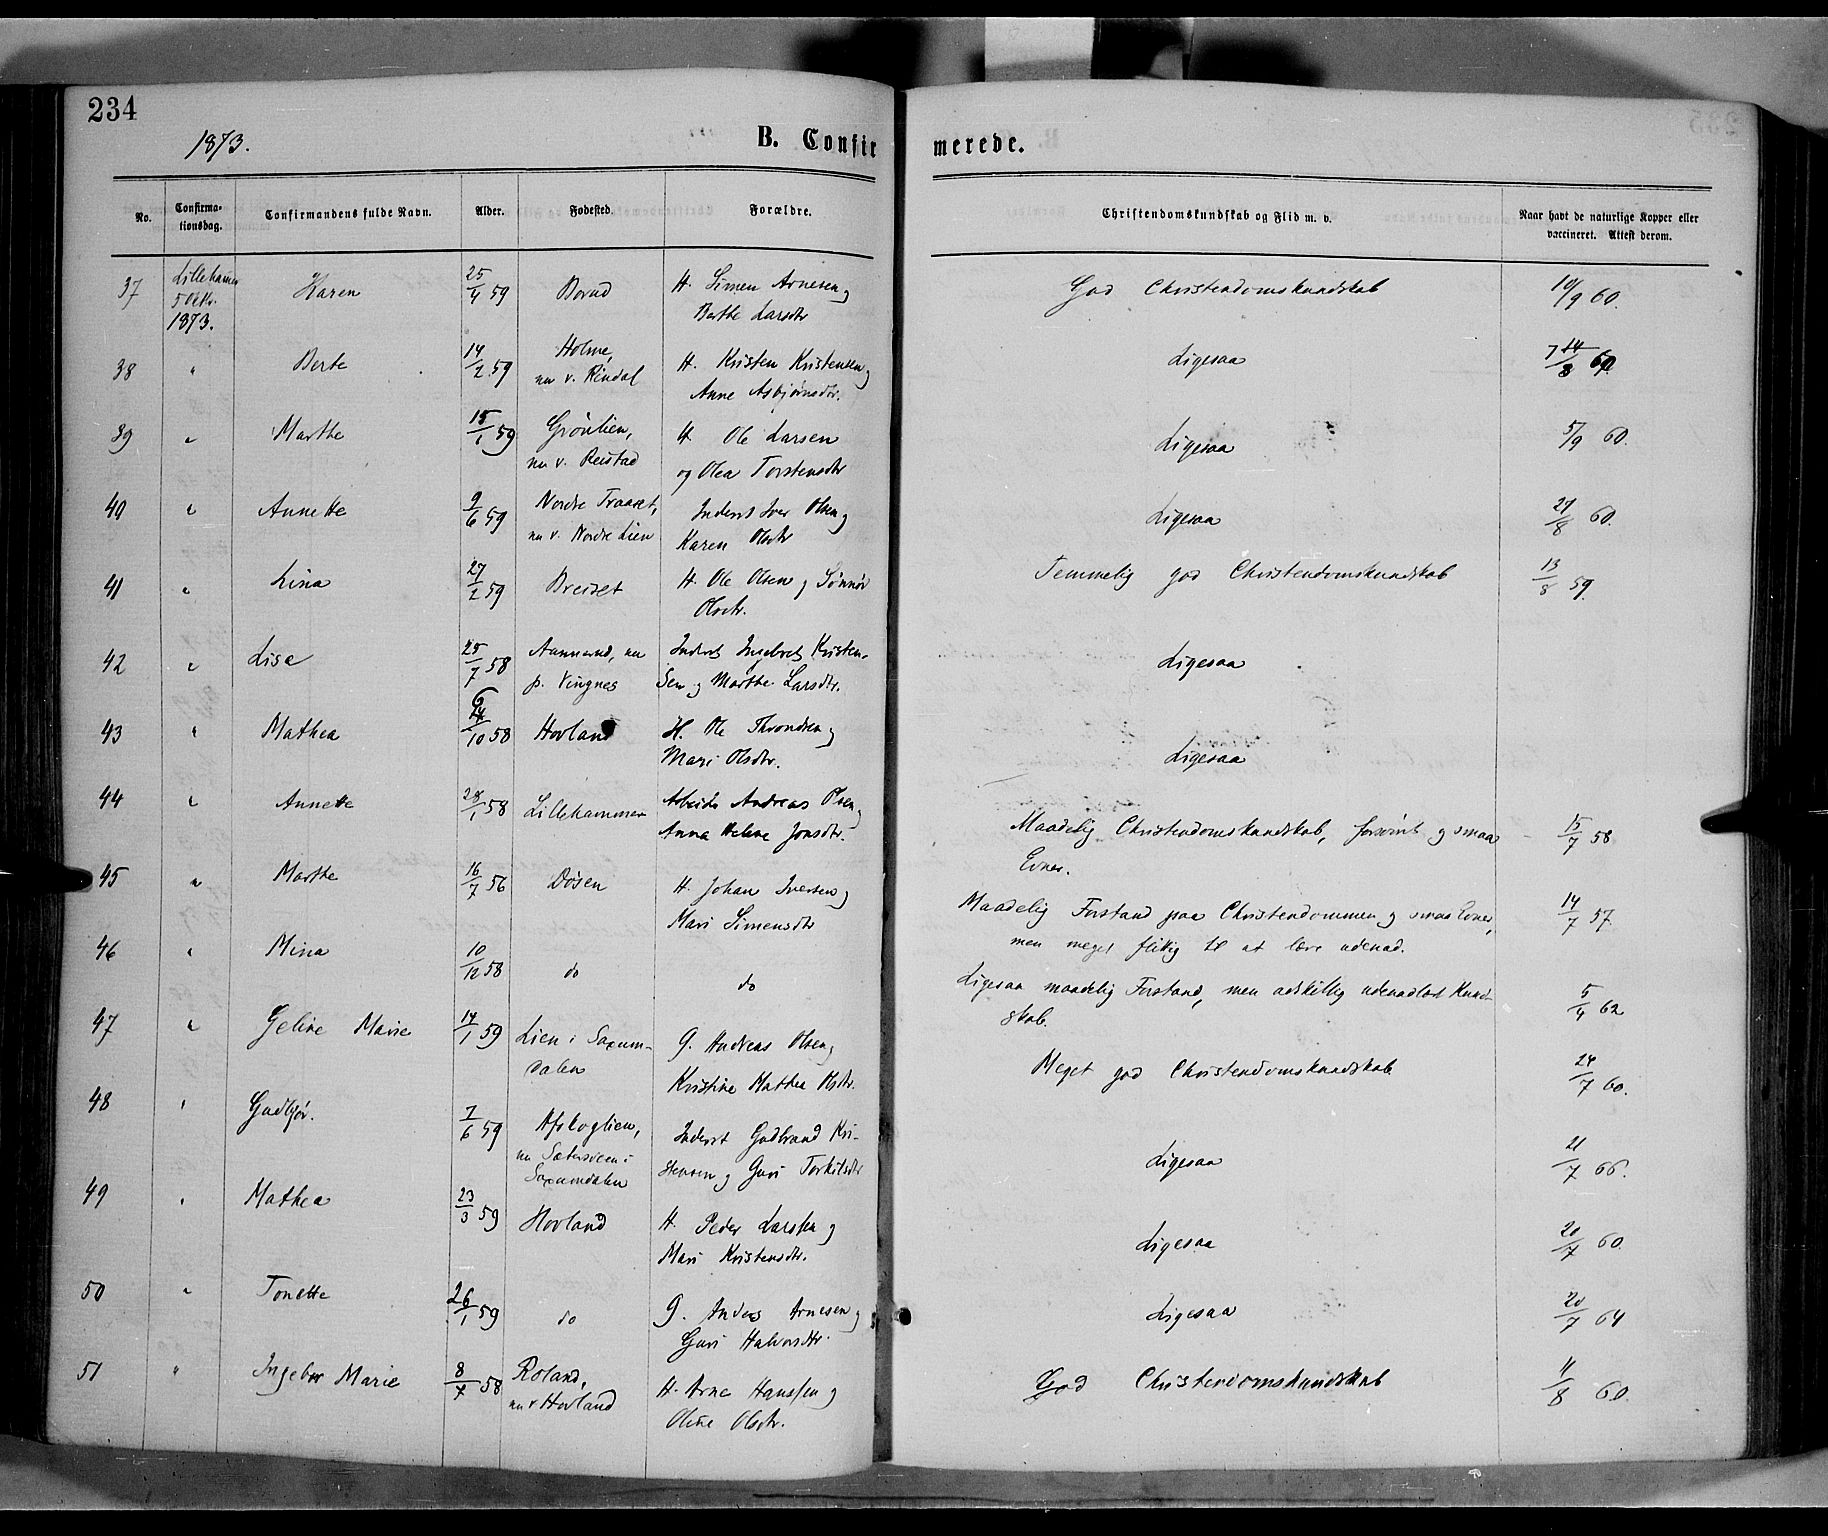 234
1873.
B. Confirmerede.
No.
Confirmationsdag.
Confirmandens fulde Navn.
Alder.
Fødested.
Forældre.
Christendomskundskab og Flid m. v.
Naar havt de naturlige Kopper eller vaccineret. Attest derom.
37 Lillehamer 5 Oktr. 1873. Karen 25/4 59 H. Simen Arnesen og Berthe Larsdtr God Christendomskundskab 10/9 60.
38 " Berte 14/2 59 Holme, nu v. Rindal H. Kristen Kristensen og Anne Asbjørnsdtr. Ligesaa
39 " Marthe 15/1 59 Grønlien, nu v. Reistad H. Ole Larsen og Olea Torstensdtr Ligesaa 5/9 60.
40 " Annette 9/6 59 Nordre Traaset, nu v. Nordre Lien Inderst Iver Olsen og Karen Olsdtr Ligesaa 27/8 60.
41 " Lina 27/2 59 Breiset H. Ole Olsen og Sønnøv Olsdtr. Temmelig god Christendomskundskab 13/8 59.
42 " Lise 25/7 58 nu p. Vingnes Inderst Ingebret Kristensen og Marthe Larsdtr. Ligesaa
43 " Mathea 6/10 58 Hovland H. Ole Throndsen og Mari Olsdtr. Ligesaa
44 " Annette 28/1 58 Lillehammer Arbeider Andreas Olsen og Anna Helene Jonsdtr. Maadelig Christendomskundskab, forsømt og smaa Evner. 15/7 58
45 " Marthe 16/7 56 Døsen H. Johan Iversen og Mari Simensdtr Maadelig Forstand paa Christendommen og smaa Evner, men meget flittig til at lære udenad. 14/7 57.
46 " Mina 10/12 58 do do Ligesaa maadelig Forstand, men adskillig udenadlært Kundskab. 5/4 62
47 " Geline Marie 14/1 59 Lien i Saxumdalen G. Andreas Olsen og Kristine Mathea Olsdtr. Meget god Christendomskundskab 24/7 60.
48 " Gudbjør. 7/6 59 Afskoglien, nu Sætersveen i Saxumdalen Inderst Gudbrand Kristensen og Guri Torkilsdtr Ligesaa 21/7 66.
49 " Mathea 23/3 59 Hovland H. Peder Larsen og Mari Kristensdtr. Ligesaa 20/7 60.
50 " Tonette 26/1 59 do G. Anders Arnesen og Guri Halvorsdtr. Ligesaa 20/7 64
51 " Ingebor Marie 8/7 58 Roland, nu v Hovland H. Arne Hanssen og Oline Olsdtr. God Christendomskundskab 11/8 60.